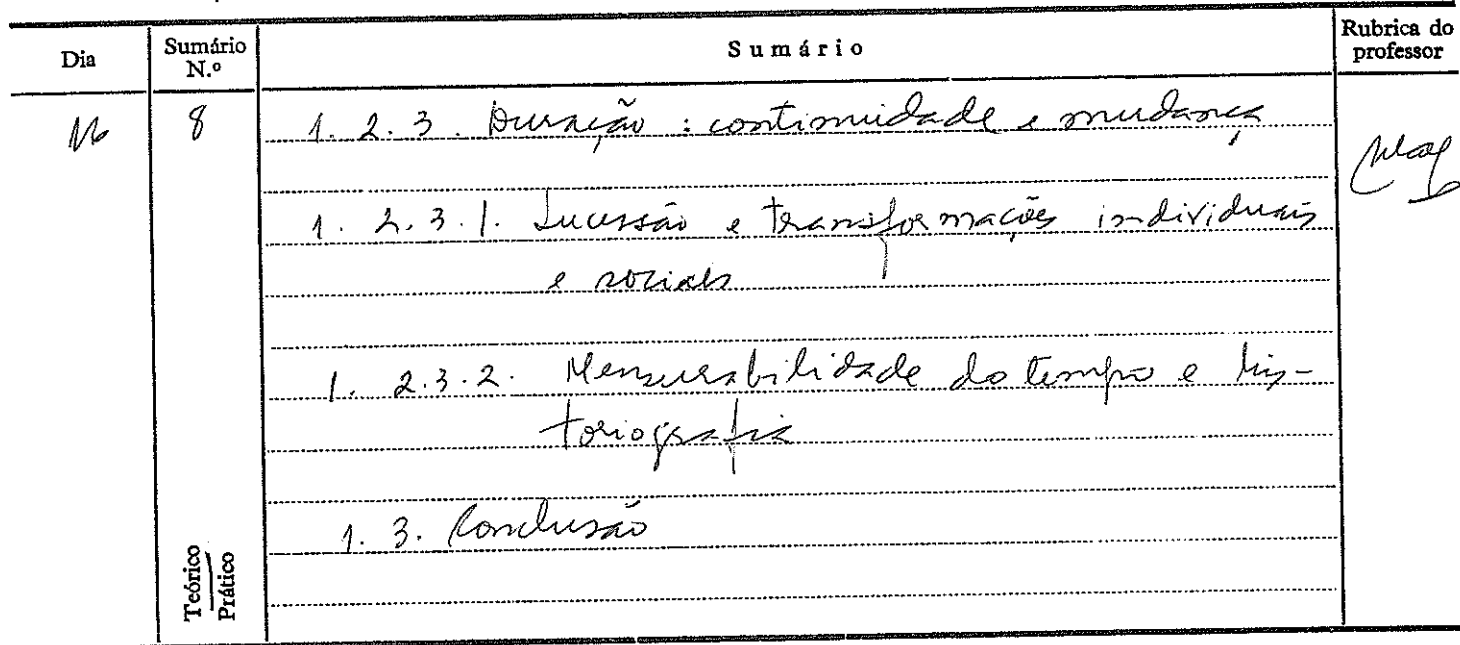 Dia
Sumário N.º
Sumário
Rubrica do professor
16
8
1. 2. 3. Duração : continuidade e mudança
1. 2. 3. 1. Sucessão e transformações individuais
e sociais
1. 2. 3. 2. Mensurabilidade do tempo e his-
toriografia
1. 3. Conclusão
Teórico
Prático